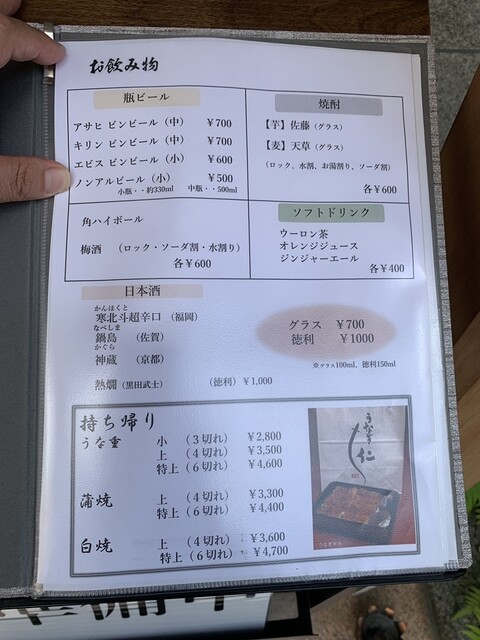 お飲み物
瓶ビール
アサヒ ビンビール（中） ￥700
キリン ビンビール（中） ￥700
エビス ビンビール（小） ￥600
ノンアルビール（小） ￥500
小瓶・・約330ml 中瓶・・500ml
焼酎
【芋】佐藤（グラス）
【麦】天草（グラス）
（ロック、水割、お湯割り、ソーダ割）
各￥600
角ハイボール
梅酒 （ロック・ソーダ割・水割り）
各￥600
ソフトドリンク
ウーロン茶
オレンジジュース
ジンジャーエール
各￥400
日本酒
かんほくと
寒北斗超辛口（福岡）
なべしま
鍋島 （佐賀）
かぐら
神蔵 （京都）
熱燗（黒田武士） （徳利）￥1,000
グラス ￥700
徳利 ￥1000
※グラス100ml、徳利150ml
持ち帰り
うな重 小 （３切れ）￥2,800
上 （４切れ）￥3,500
特上（６切れ）￥4,600
蒲焼 上 （４切れ）￥3,300
特上（６切れ）￥4,400
白焼 上 （４切れ）￥3,600
特上（６切れ）￥4,700
うなぎ 仁